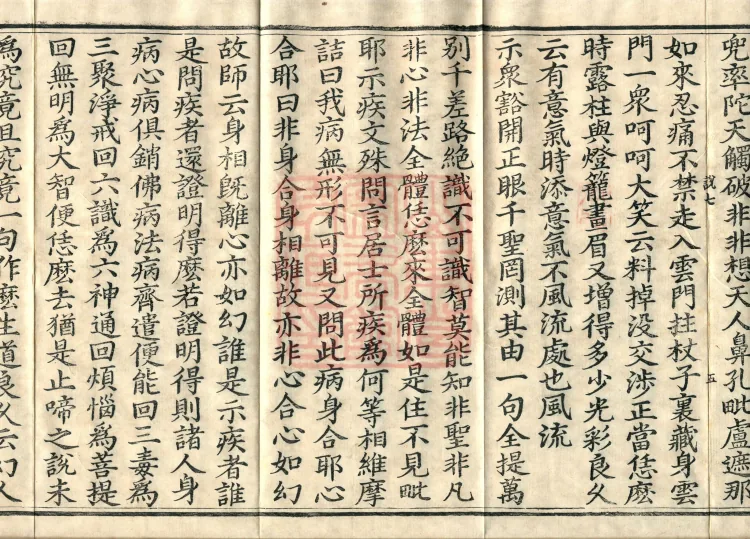 兜率陀天觸破非非想天人鼻孔毗盧遮那
說七
五
如來忍痛不禁走入雲門拄杖子裏藏身雲
門一衆呵呵大笑云料掉没交涉正當恁麽
時露柱與燈籠畫眉又增得多少光彩良久
云有意氣時添意氣不風流處也風流
示衆豁開正眼千聖罔測其由一句全提萬
别千差路絶識不可識智莫能知非聖非凡
非心非法全體恁麽來全體如是住不見毗
耶示疾文殊問言居士所疾爲何等相維摩
詰曰我病無形不可見又問此病身合耶心
合耶曰非身合身相離故亦非心合心如幻
故師云身相旣離心亦如幻誰是示疾者誰
是問疾者還證明得麽若證明得則諸人身
病心病俱銷佛病法病齊遣便能回三毒爲
三聚淨戒回六識爲六神通回煩惱爲菩提
回無明爲大智便恁麽去猶是止啼之說未
爲究竟且究竟一句作麽生道良久云幻人